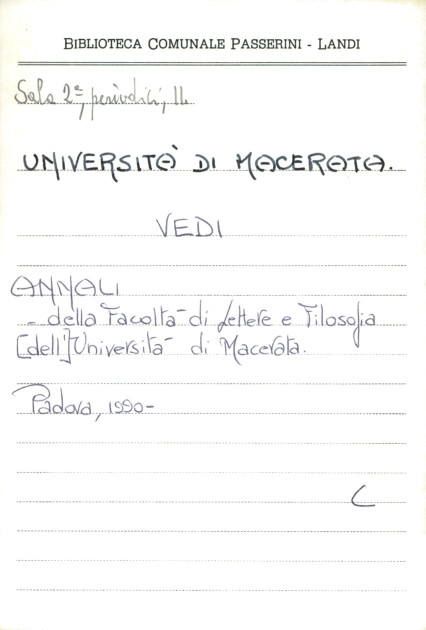 BIBLIOTECA COMUNALE PASSERINI - LANDI
Sala 2ª, periodici, 16
UNIVERSITÀ DI MACERATA.
VEDI
ANNALI
- della Facoltà di Lettere e Filosofia
[dell']Università di Macerata.
Padova, 1990-
C